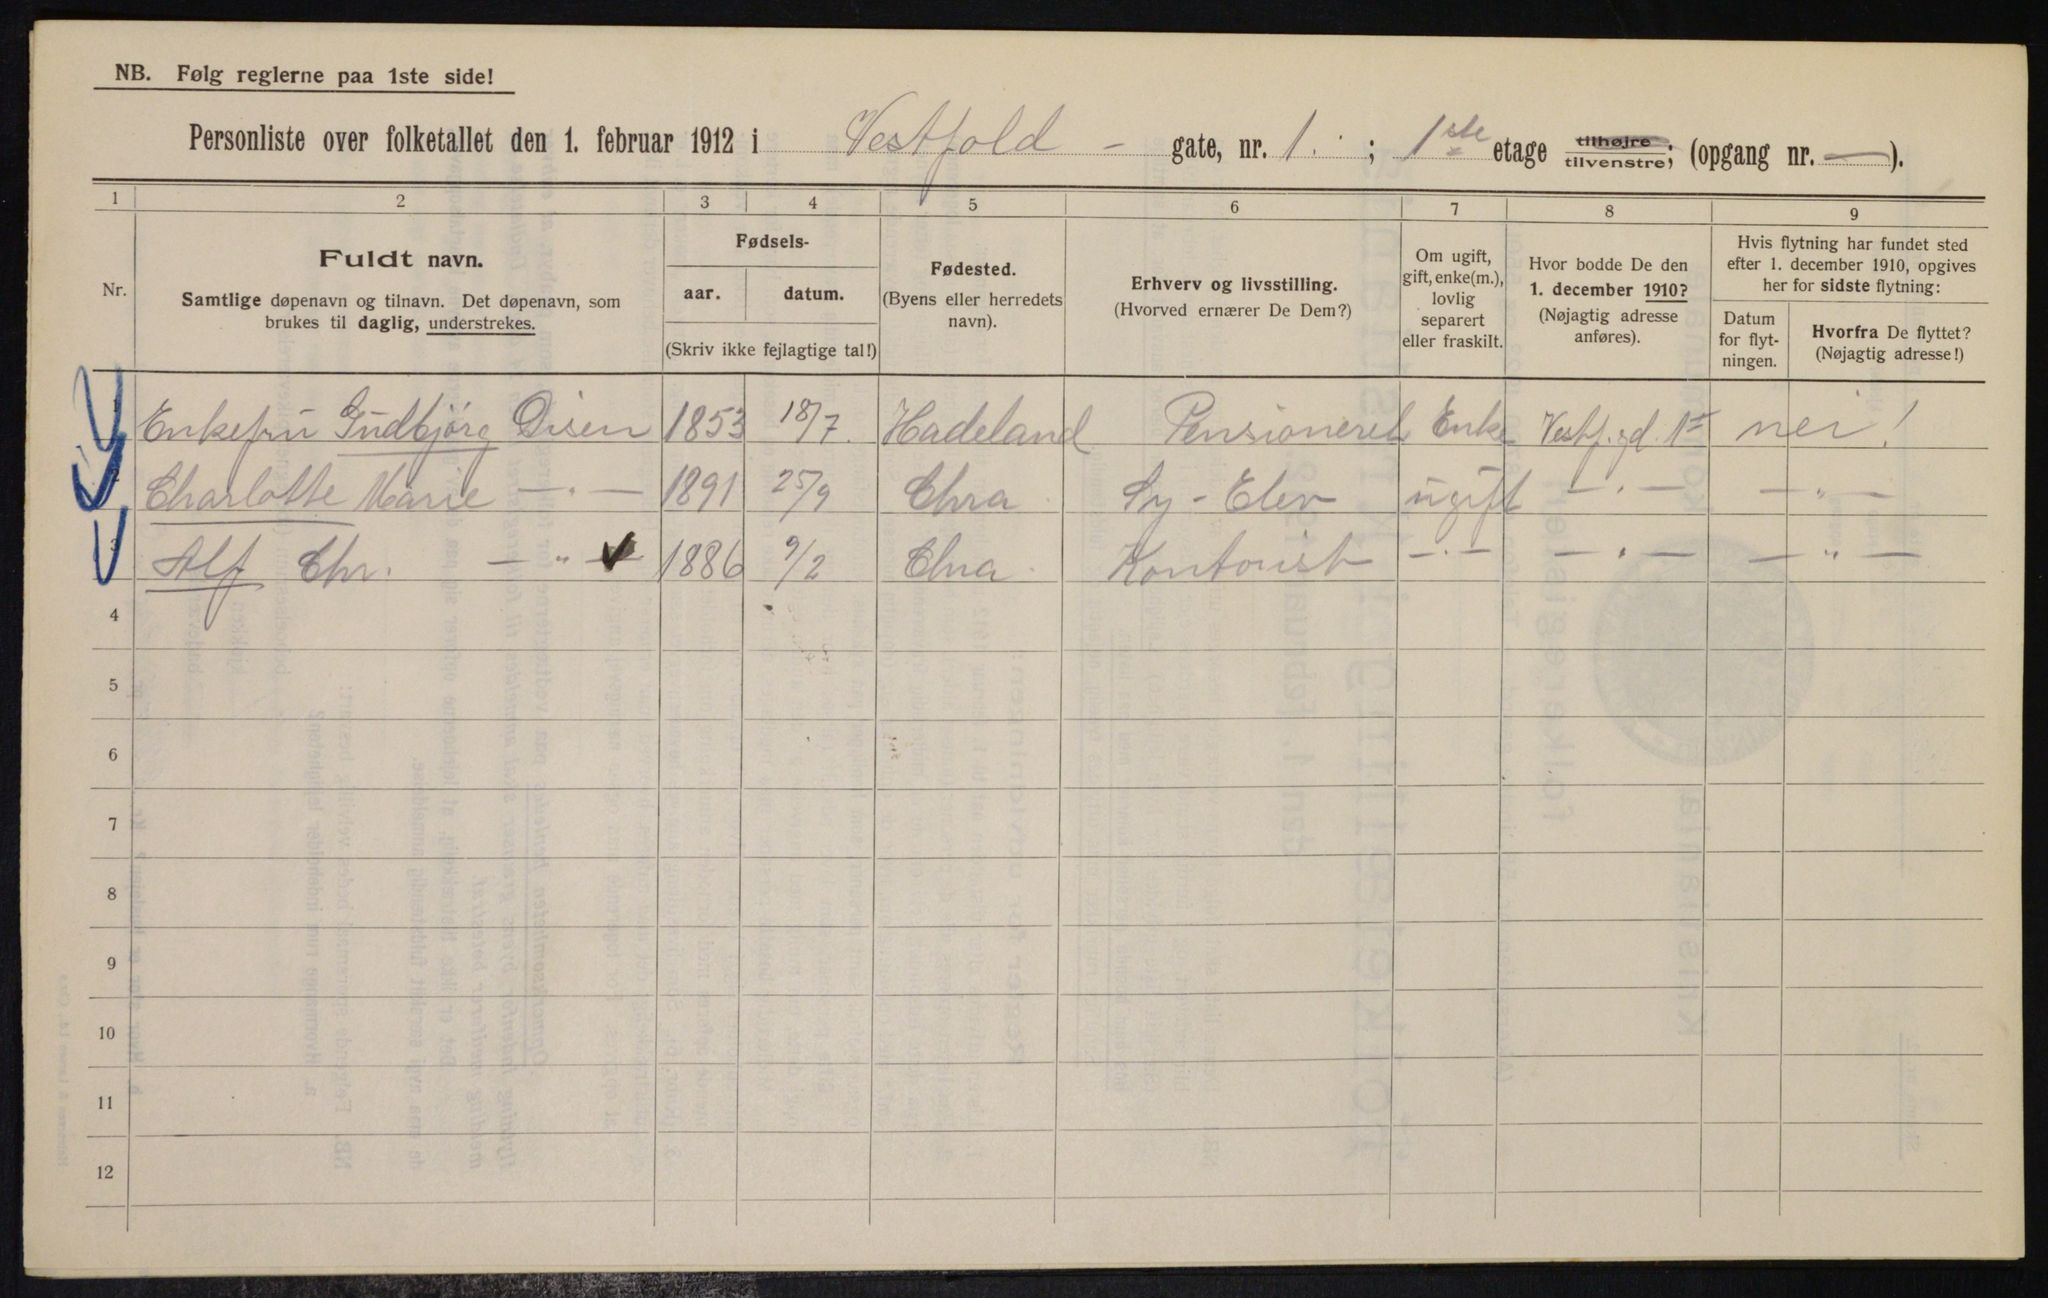 NB. Følg reglerne paa 1ste side!
Personliste over folketallet den 1. februar 1912 i Vestfold - gate, nr. 1. ; 1ste etage tilhøjre tilvenstre; (opgang nr. — ).
1 2 3 4 5 6 7 8 9
Nr.
Fuldt navn.
Samtlige døpenavn og tilnavn. Det døpenavn, som
brukes til daglig, understrekes.
Fødsels-
aar. datum.
(Skriv ikke fejlagtige tal!)
Fødested.
(Byens eller herredets
navn).
Erhverv og livsstilling.
(Hvorved ernærer De Dem?)
Om ugift,
gift, enke(m.),
lovlig
separert
eller fraskilt.
Hvor bodde De den
1. december 1910?
(Nøjagtig adresse
anføres).
Hvis flytning har fundet sted
efter 1. december 1910, opgives
her for sidste flytning:
Datum
for flyt-
ningen.
Hvorfra De flyttet?
(Nøjagtig adresse!)
1 Enkefru Gudbjørg Disen 1853 18/7. Hadeland Pensioneret Enke Vestf.gd. 1st nei!
2 Charlotte Marie — " — 1891 25/9 Chra. Sy-Elev ugift — " — — " —
3 Alf Chr. — " — 1886 9/2 Chra. Kontorist — " — — " — — " —
4
5
6
7
8
9
10
11
12